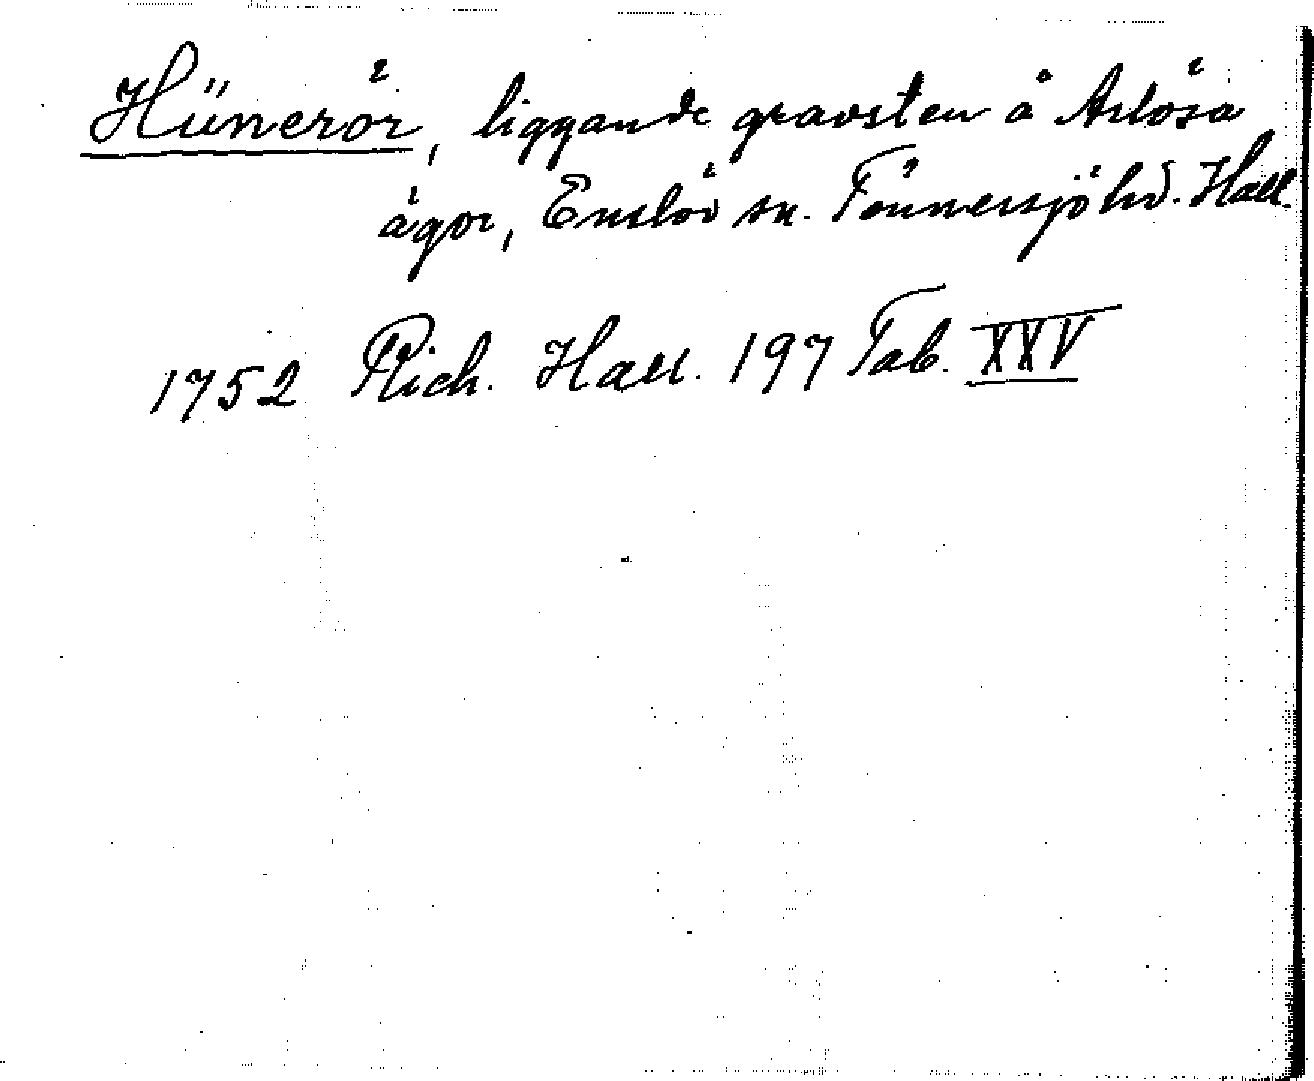 Hünerör, liggande gravsten å Arlösa
ägor, Enslöv sn. Tönnersjö hd. Hall.
1752 Rich. Hall. 197 Tab. XXV